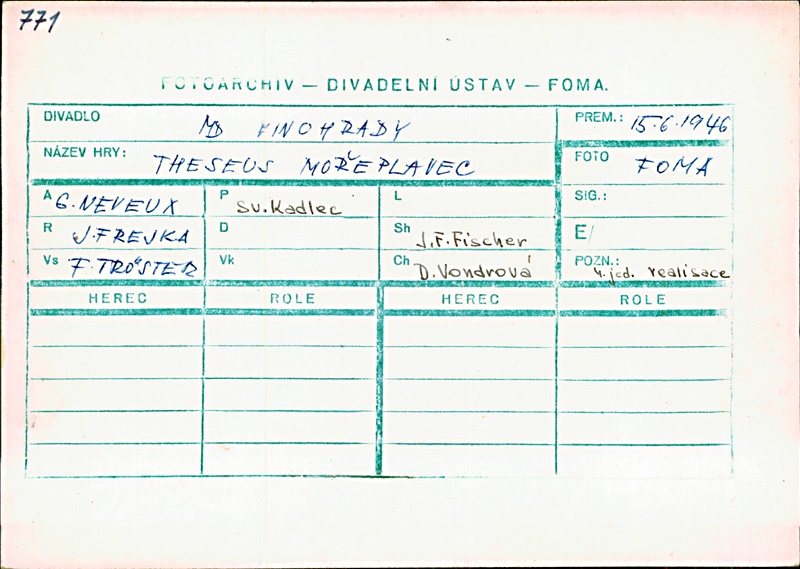 771
FOTOARCHIV — DIVADELNÍ ÚSTAV — FOMA.
DIVADLO MD VINOHRADY PREM.: 15.6.1946
NÁZEV HRY: THESEUS MOŘEPLAVEC FOTO FOMA
A G. NEVEUX P Sv. Kadlec L SIG.:
R J. FREJKA D Sh J.F. Fischer E/
Vs F. TRÖSTER Vk Ch D. Vondrová POZN.: 4. jed. realisace
HEREC ROLE HEREC ROLE